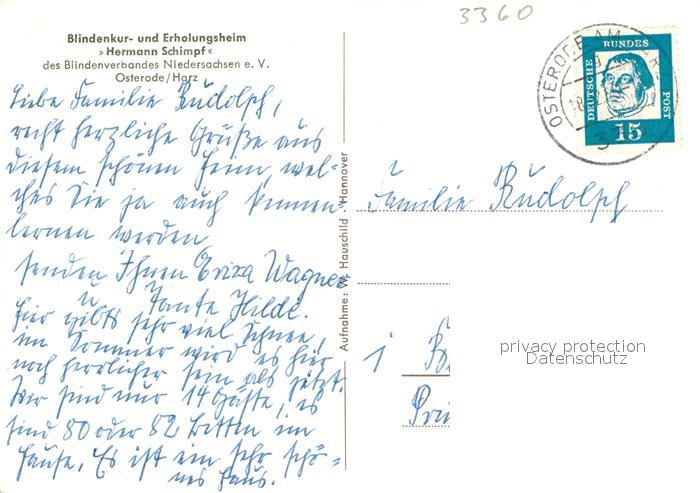 3360
Blindenkur- und Erholungsheim
» Hermann Schimpf «
des Blindenverbandes Niedersachsen e. V.
Osterode/Harz
Liebe Familie Rudolph,
recht herzliche Grüße aus
diesem schönen Heim, wel-
ches Sie ja auch kennen-
lernen werden
senden Ihnen Erika Wagner
u. Tante Hilde.
Hier gibts sehr viel Schnee,
im Sommer wird es hier
noch herrlicher sein als jetzt.
Wir sind nur 14 Gäste, es
sind 80 oder 82 Betten im
Hause. Es ist ein sehr schö-
nes Haus.
Aufnahme: W. Hauschild · Hannover
OSTERODE AM
18.
3
DEUTSCHE BUNDESPOST
15
Familie Rudolph
privacy protection
Datenschutz